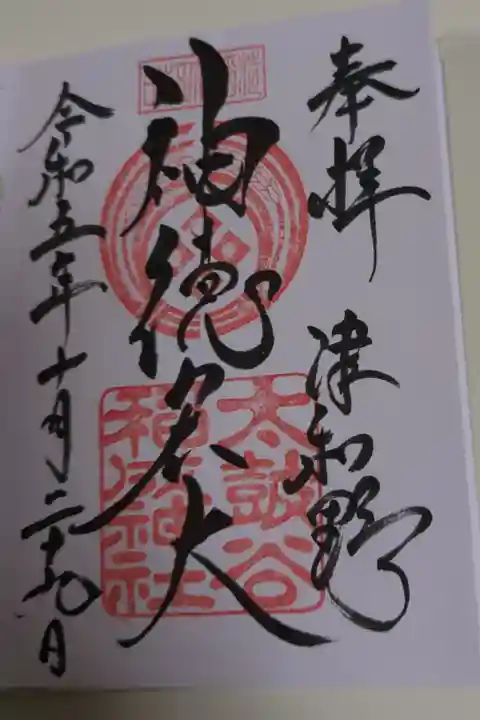 奉拝 津和野
神徳宏大
太皷谷
稲成神社
令和五年十月二十九日